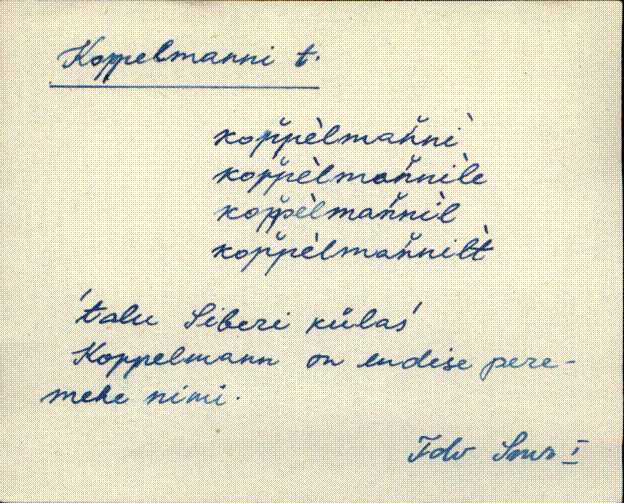 Koppelmanni t.
kop̆pèlman̆nì
kop̆pèlman̆nìle
kop̆pèlman̆nìl
kop̆pèlman̆nilt̀
'talu Siberi külas'
Koppelmann on endise pere-
mehe nimi.